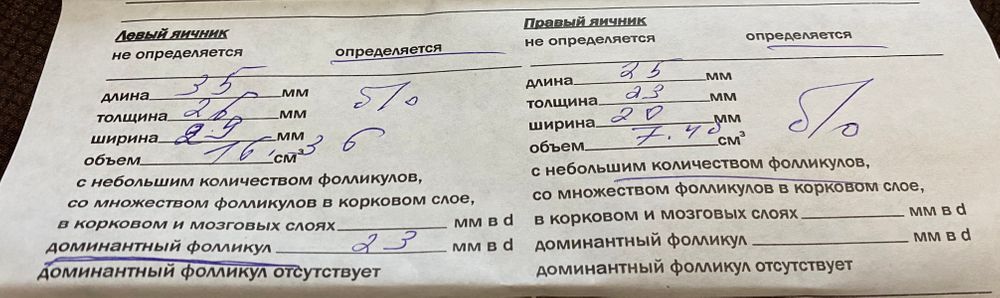 Левый яичник
не определяется определяется
длина 35 мм
толщина 26 мм
ширина 29 мм
объем 16, 36 см³
б/о
с небольшим количеством фолликулов,
со множеством фолликулов в корковом слое,
в корковом и мозговых слоях мм в d
доминантный фолликул 23 мм в d
доминантный фолликул отсутствует
Правый яичник
не определяется определяется
длина 25 мм
толщина 23 мм
ширина 20 мм
объем 7.48 см³
б/о
с небольшим количеством фолликулов,
со множеством фолликулов в корковом слое,
в корковом и мозговых слоях мм в d
доминантный фолликул мм в d
доминантный фолликул отсутствует